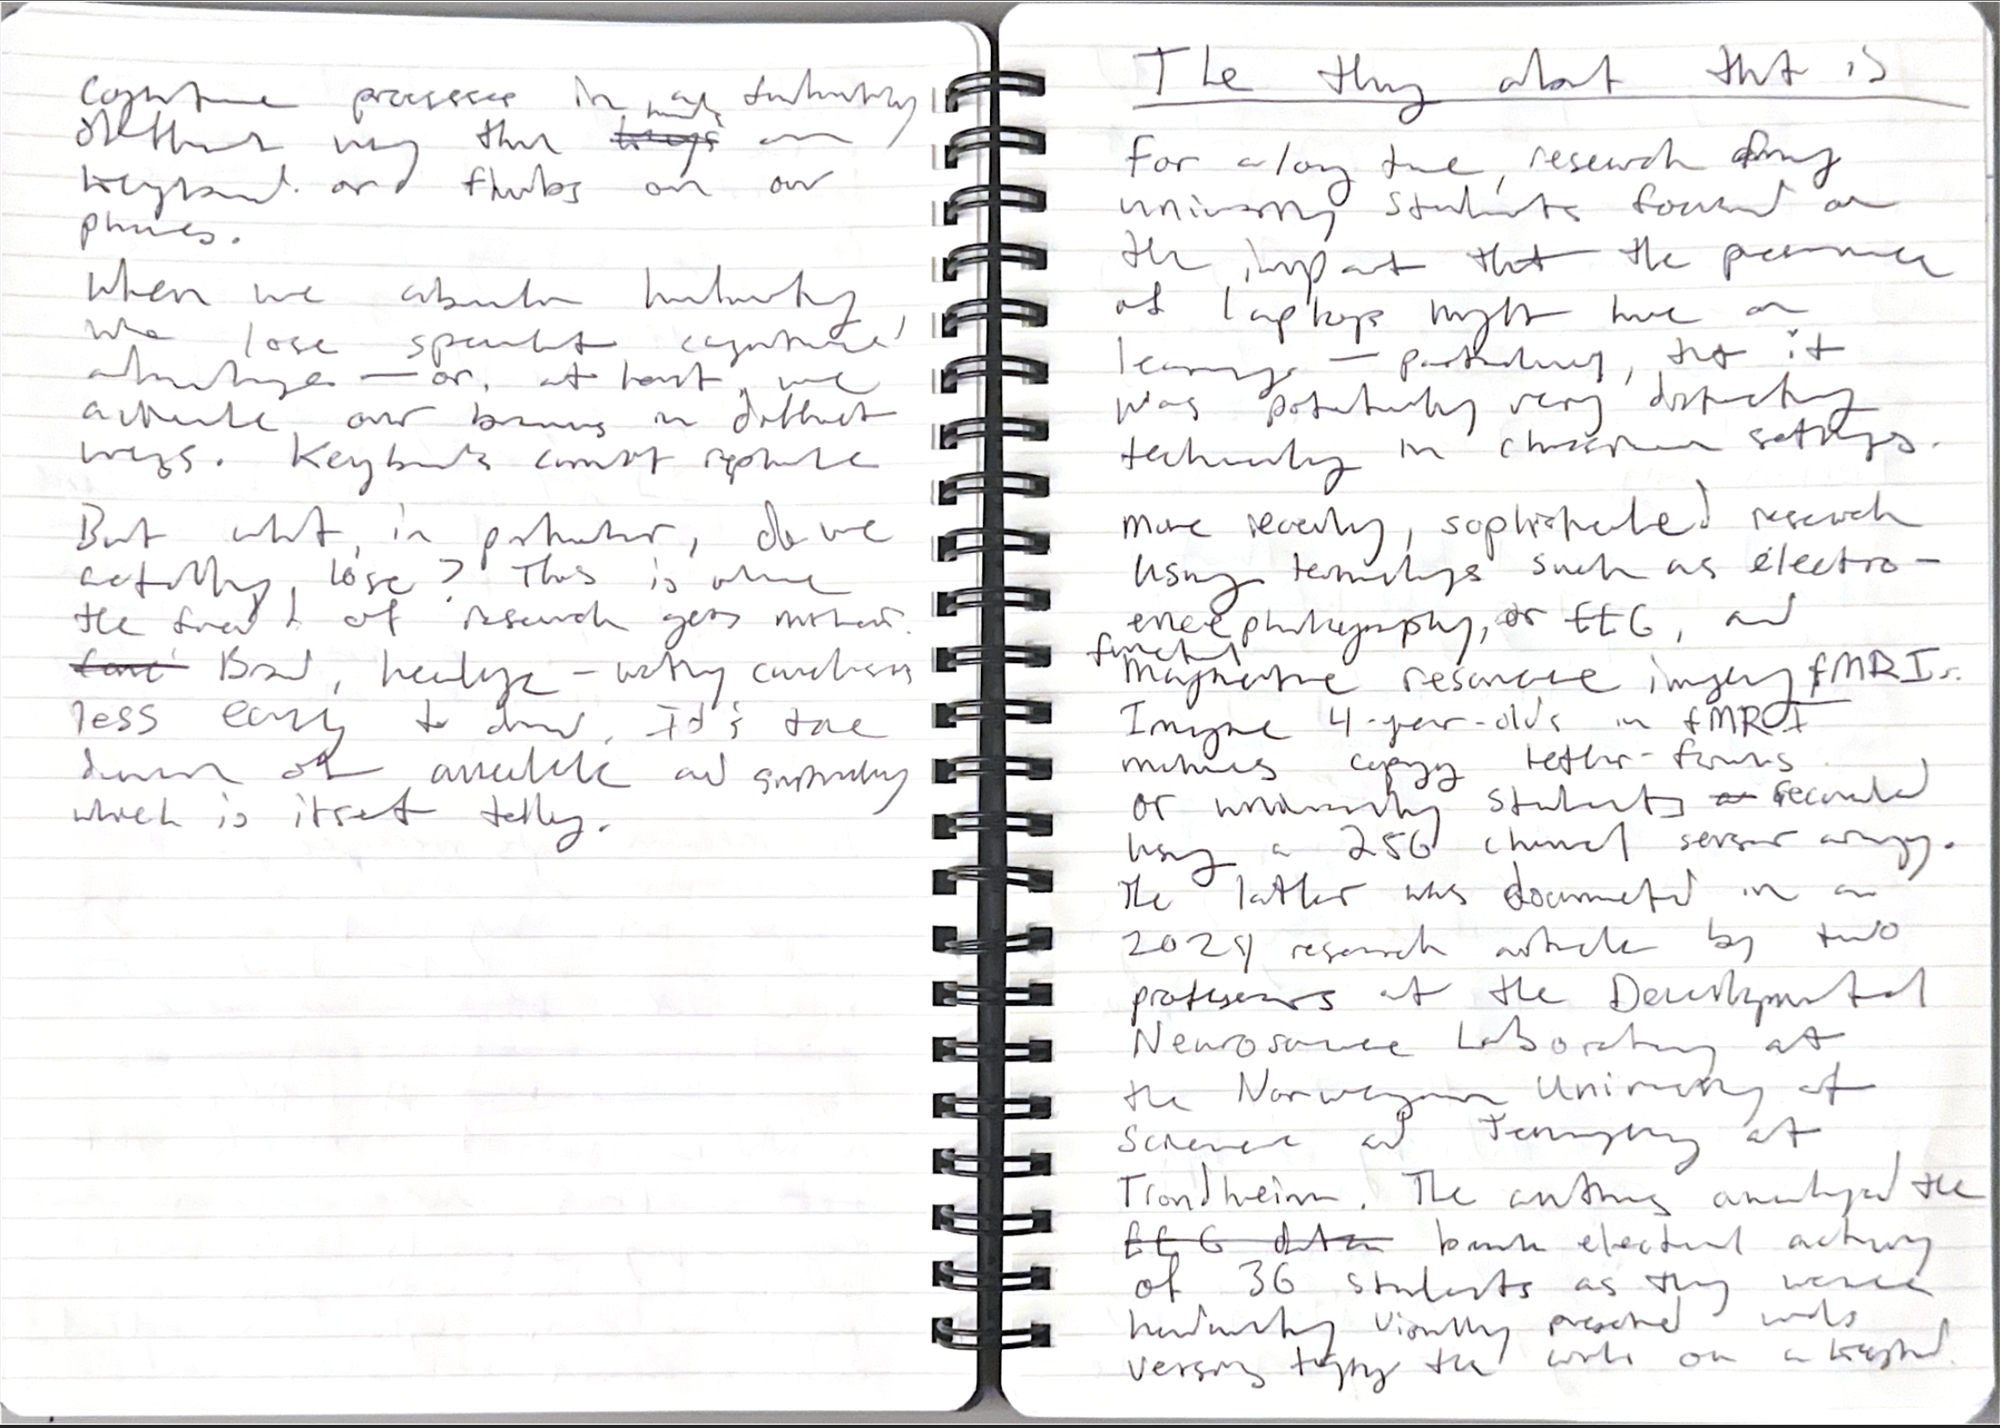 cognitive processes in a fundamentally
different way than hands on
keyboard and thumbs on our
phones.
When we abandon handwriting
we lose specific cognitive
advantages — or, at least, we
activate our brains in different
ways. Keyboards cannot replicate
But what, in particular, do we
actually, lose? This is where
the of research gets
Broad, headline-worthy conclusions
less easy to draw. It's
down
which is itself telling.
The thing about that is
For a long time, research
university students focused on
the impact that the presence
of laptops might have on
learning — particularly, that it
was potentially very distracting
technology in classroom settings.
More recently, sophisticated research
using technologies such as electro-
encephalography, or EEG, and
functional
magnetic resonance imaging fMRIs.
Imagine 4-year-olds in fMRI
machines copying letter-forms
or university students recorded
using a 256 channel sensor array.
The latter was documented in an
2024 research article by two
professors at the Developmental
Neuroscience Laboratory at
the Norwegian University of
Science and Technology at
Trondheim. The authors analyzed the
EEG data brain electrical activity
of 36 students as they were
handwriting visually presented words
versus typing the words on a keyboard.